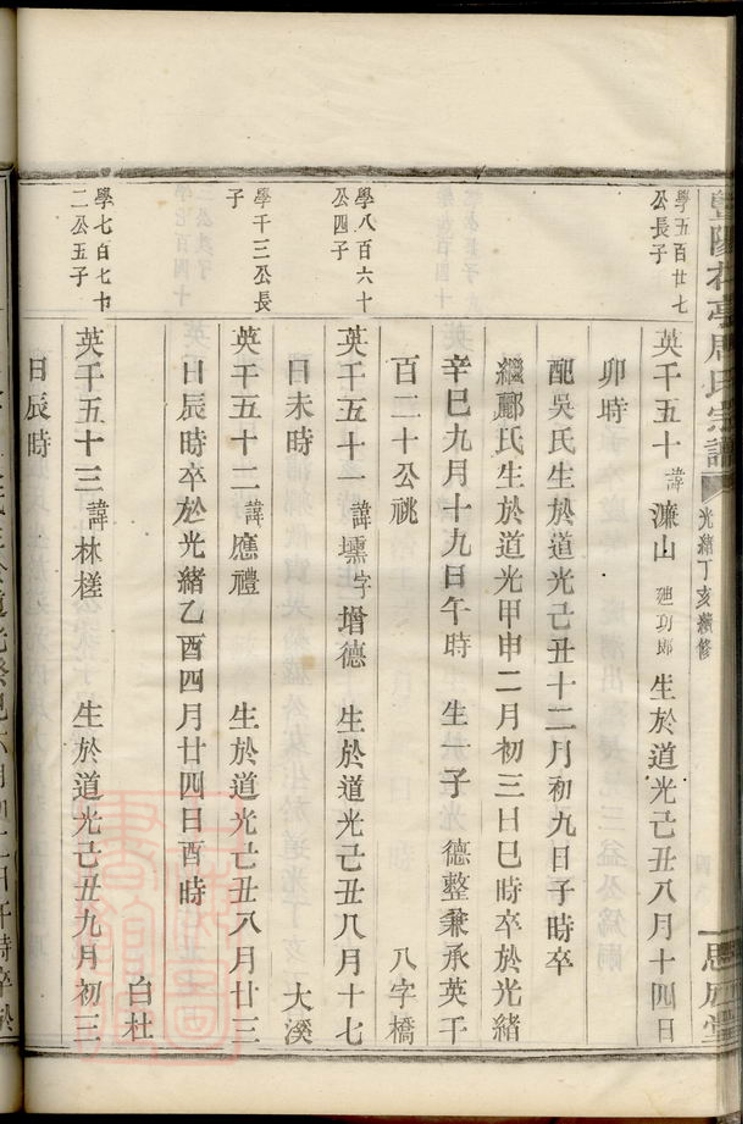 暨陽在亭周氏宗譜 光緒丁亥續修 思居堂
學五百廿七
公長子
英千五十 諱 濂山 廸功郎 生於道光己丑八月十四日
卯時
配吳氏生於道光己丑十二月初九日子時卒
繼酈氏生於道光甲申二月初三日巳時卒於光緒
辛巳九月十九日午時 生一子 德整兼承英千
百二十公祧 八字橋
學八百六十
公四子
英千五十一 諱 壖 字 增德 生於道光己丑八月十七
日未時 大溪
學千三公長
子
英千五十二 諱 應禮 生於道光己丑八月廿三
日辰時卒於光緒乙酉四月廿四日酉時
白杜
學七百七十
二公五子
英千五十三 諱 林槎 生於道光己丑九月初三
日辰時